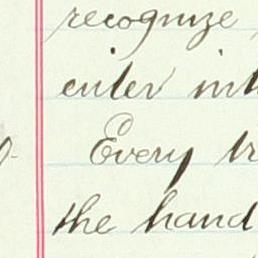 recognize
enter int
Every tr
the hand